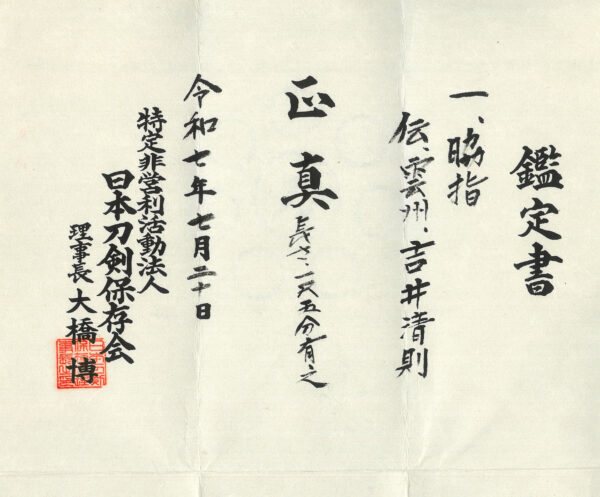 鑑定書
一、脇指
伝、雲州、吉井清則
正真
長さ、一尺五分有之
令和七年七月二十日
特定非営利活動法人
日本刀剣保存会
理事長 大橋 博